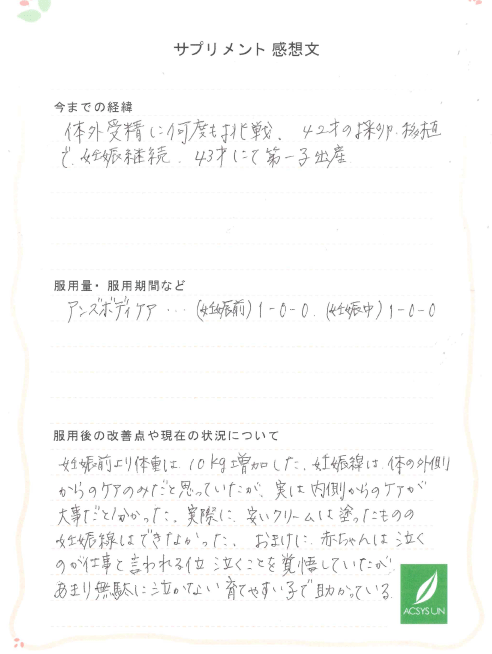 サプリメント 感想文
今までの経緯
体外受精に何度も挑戦。42才の採卵・移植
で、妊娠継続。43才にて第一子出産
服用量・服用期間など
アンズボディケア…(妊娠前)1-0-0.(妊娠中)1-0-0
服用後の改善点や現在の状況について
妊娠前より体重は、10kg増加した。妊娠線は、体の外側
からのケアのみだと思っていたが、実は内側からのケアが
大事だと分かった。実際に、安いクリームは塗ったものの
妊娠線はできなかった。おまけに、赤ちゃんは泣く
のが仕事と言われる位 泣くことを覚悟していたが、
あまり無駄に泣かない育てやすい子で助かっている。
ACSYSUN